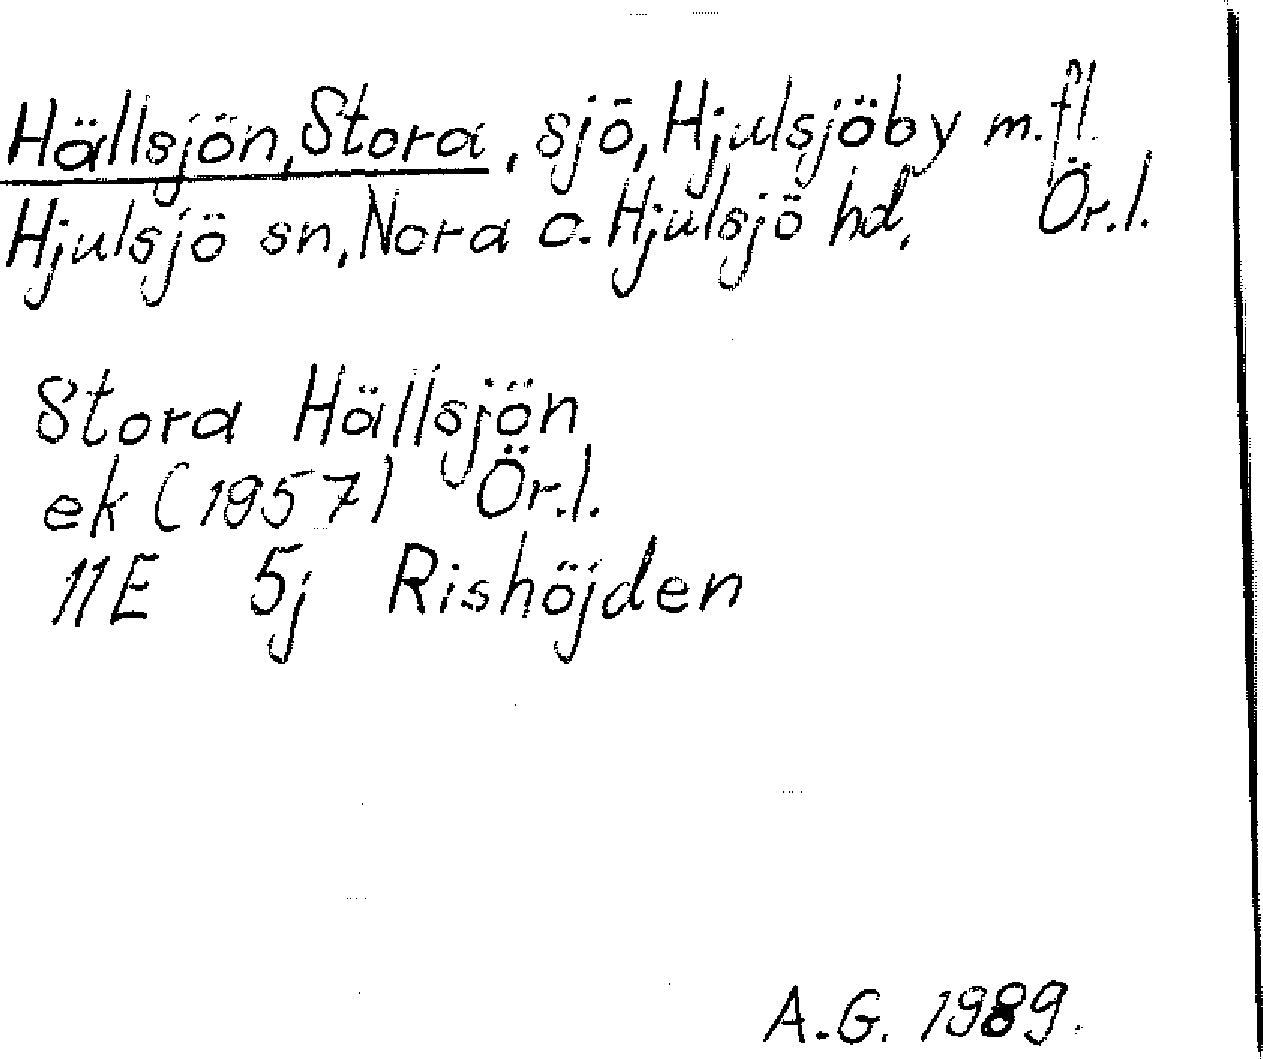 Hällsjön, Stora, sjö, Hjulsjöby m.fl.
Hjulsjö sn, Nora o. Hjulsjö hd, Ör.l.
Stora Hällsjön
ek (1957) Ör.l.
11E 5j Rishöjden
A.G. 1989.